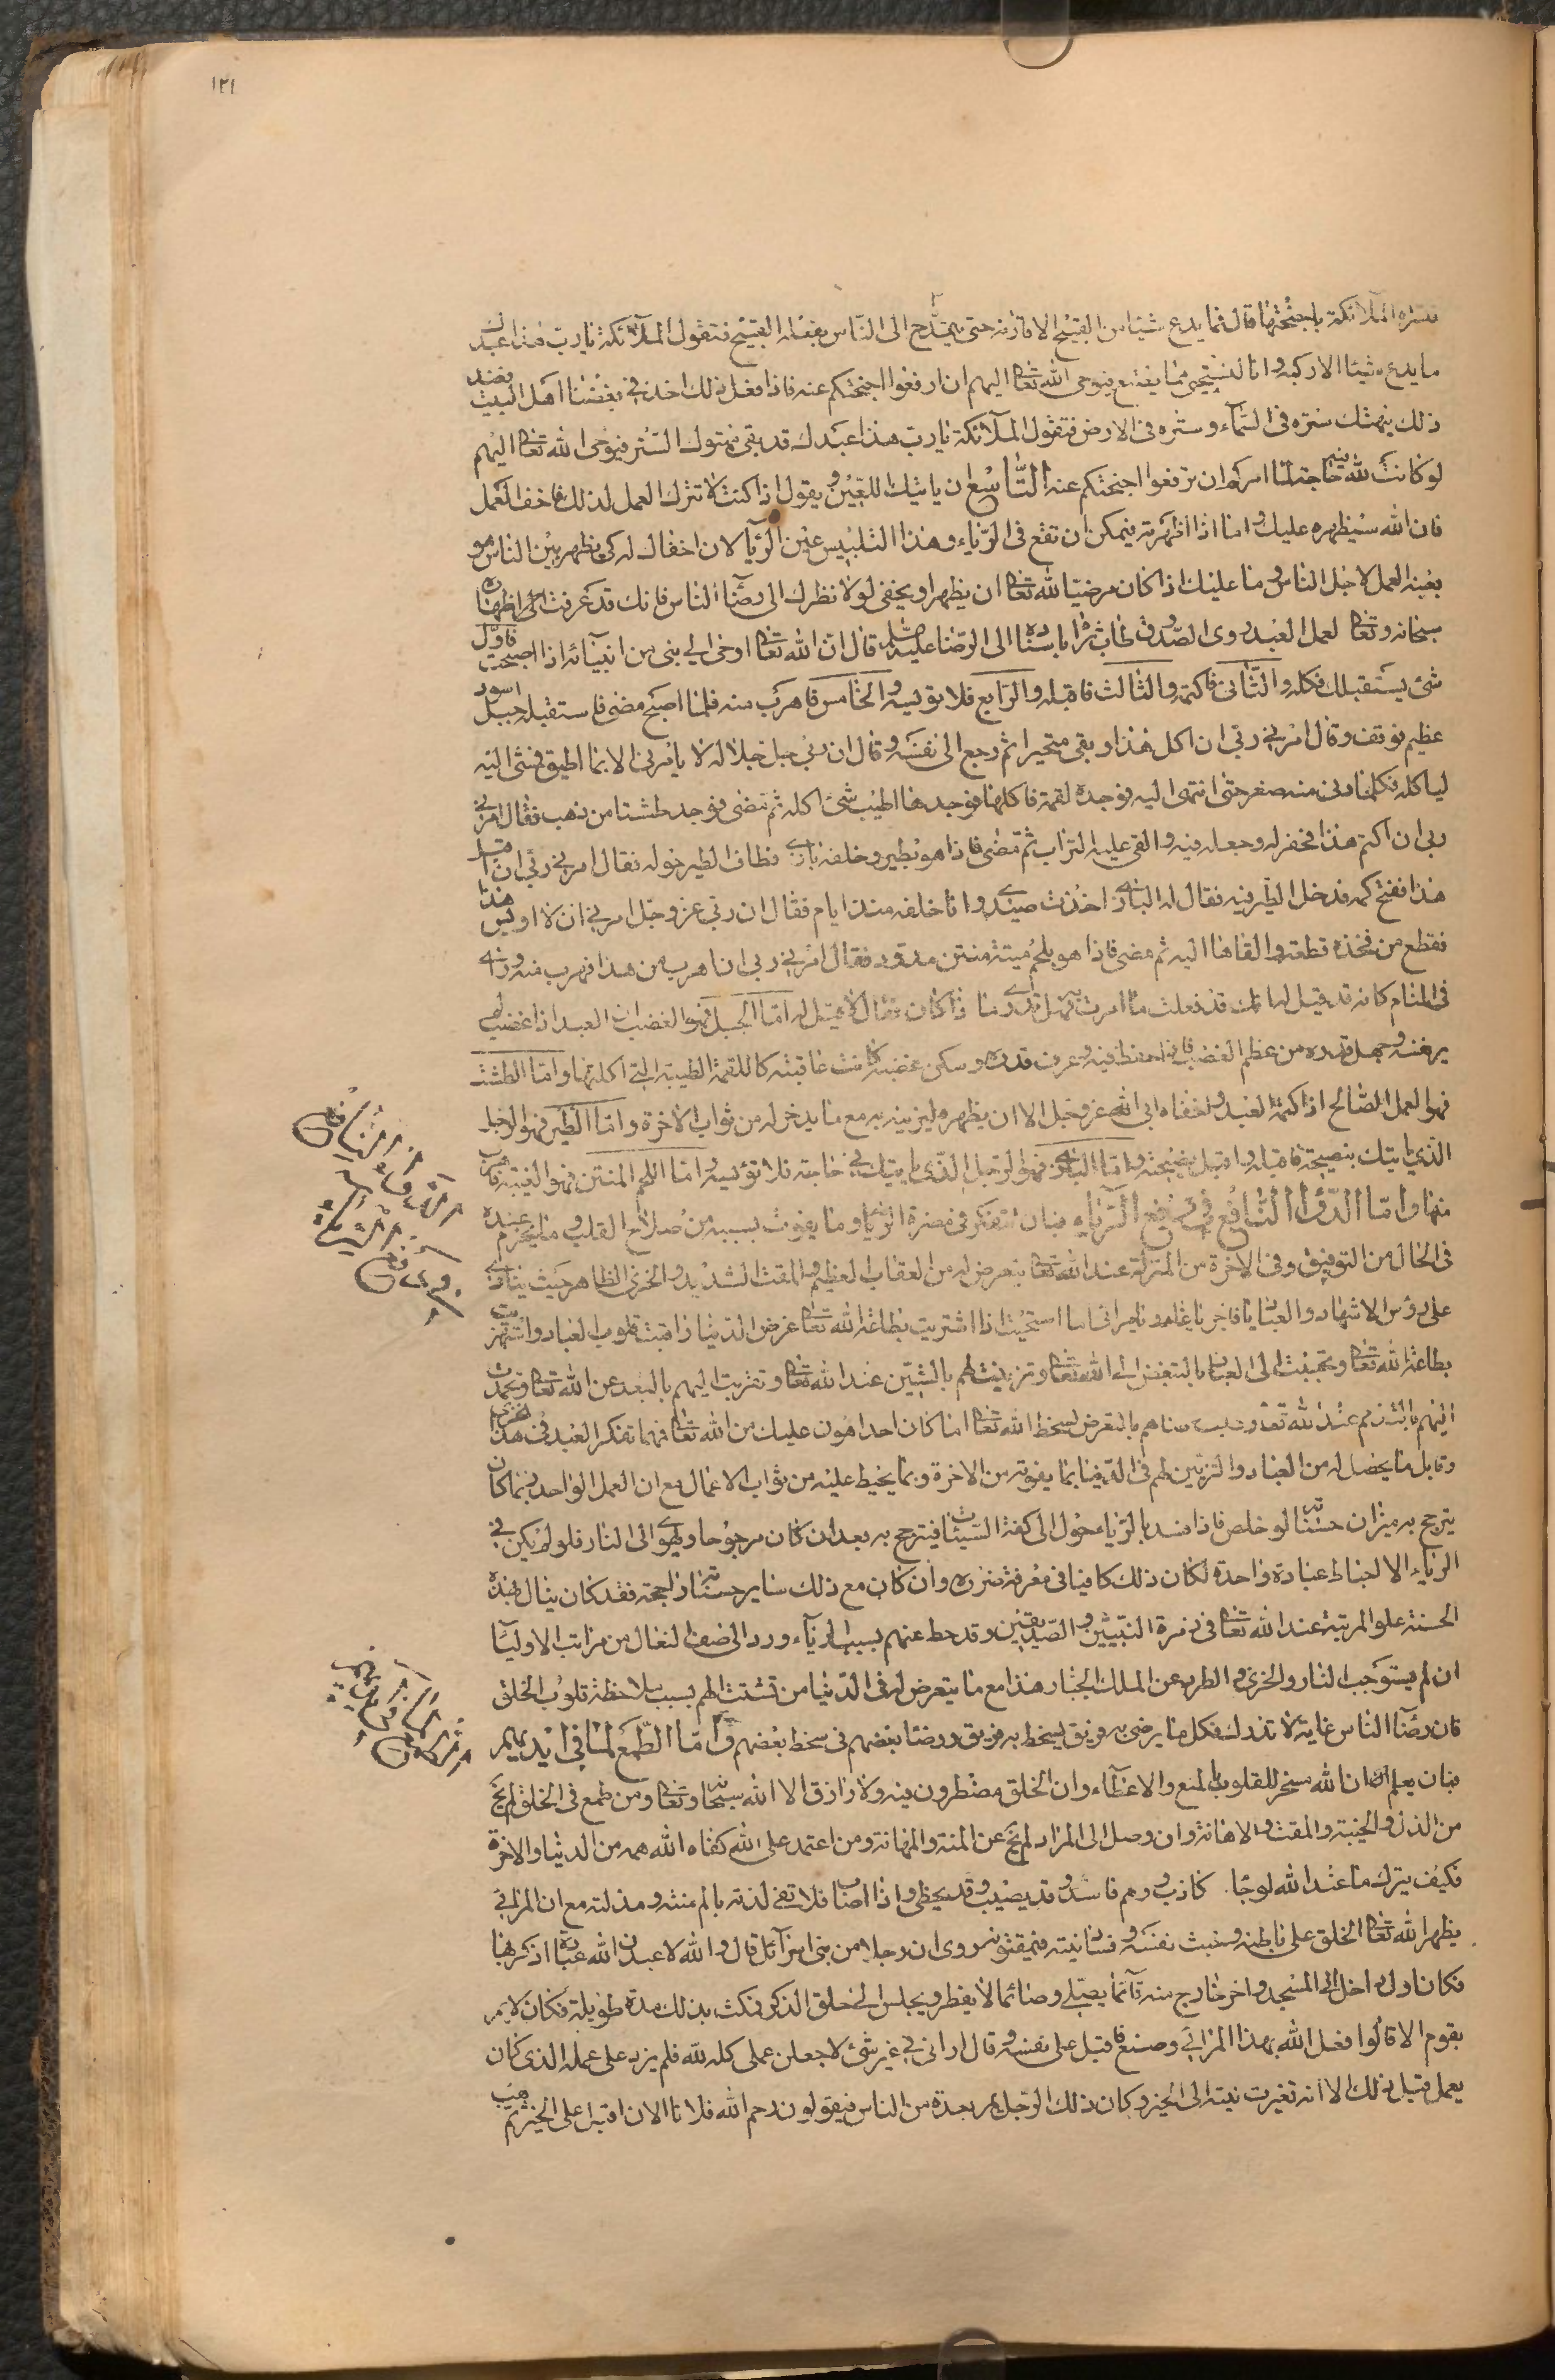 ١٢١
فتستره الملائكة باجنحتها قال فما يدع شيئا من القبيح الا قارفه حتى يتمدح الى الناس بفعله القبيح فتقول الملائكة يا رب هذا عبدك
ما يدع شيئا الا ركبه وانا لنستحيي مما يصنع فيوحي الله تعالى اليهم ان ارفعوا اجنحتكم عنه فاذا فعل ذلك اخذ في بغضنا اهل البيت فعند
ذلك ينهتك ستره في السماء وستره في الارض فتقول الملائكة يا رب هذا عبدك قد بقى مهتوك الستر فيوحى الله تعالى اليهم
لو كانت لله فيه حاجة لما امركم ان ترفعوا اجنحتكم عنه التاسع ان ياتيك اللعين ويقول اذا كنت لا تترك العمل لذلك فاخف العمل
فان الله سيظهره عليك واما اذا اظهرته فيمكن ان تقع في الرياء وهذا التلبيس عين الريا لان اخفاك له كي يظهر بين الناس هو
بعينه العمل لاجل الناس وما عليك اذا كان مرضيا لله تعالى ان يظهر او يخفى لولا نظرك الى رضا الناس فانك قد عرفت ان اظهاره
سبحانه وتعالى لعمل العبد روى الصدوق طاب ثراه باسناده الى الرضا عليه السلام قال ان الله تعالى اوحى الى نبى من انبيائه اذا اصبحت فاول
شئ يستقبلك فكله والثانى فاكتمه والثالث فاقبله والرابع فلا تؤيسه والخامس فاهرب منه فلما اصبح مضى فاستقبله جبل اسود
عظيم فوقف وقال امرني ربى ان اكل هذا وبقى متحيرا ثم رجع الى نفسه وقال ان ربي جل جلاله لا يامرنى الا بما اطيق فمشى اليه
لياكله فكلما دنى منه صغر حتى انتهى اليه فوجده لقمة فاكلها فوجدها اطيب شئ اكله ثم مضى فوجد طشتا من ذهب فقال امرني
ربى ان اكتم هذا فحفر له وجعله فيه والقى عليه التراب ثم مضى فاذا هو بطير وخلفه بازي فطاف الطير حوله فقال امرني ربي ان اقبل
هذا ففتح كمه فدخل الطير فيه فقال له البازي اخذت صيدي وانا خلفه منذ ايام فقال ان ربي عز وجل امرني ان لا اويس هذا
فقطع من فخذه قطعة والقاها اليه ثم مضى فاذا هو بلحم ميتة منتن مدود فقال امرني ربى ان اهرب من هذا فهرب منه وراى
في المنام كانه قد قيل له انك قد فعلت ما امرت به فهل تدري ما ذا كان فقال لا قيل له اما الجبل فهو الغضب ان العبد اذا غضب لم
ير نفسه وجهل قدره من عظم الغضب فاذا حفظ نفسه وعرف قدره وسكن غضبه كانت عاقبته كاللقمة الطيبة التي اكلتها واما الطشت
فهو العمل الصالح اذا كتمه العبد واخفاه ابى الله عز وجل الا ان يظهره ليزينه به مع ما يدخر له من ثواب الاخرة واما الطير فهو الرجل
الذي ياتيك بنصيحة فاقبله واقبل نصيحته واما البازي فهو الرجل الذي ياتيك في حاجة فلا تؤيسه واما اللحم المنتن فهو الغيبة فاهرب
منها واما الدواء النافع في دفع الرياء فبان تتفكر في مضرة الرياء وما يفوت بسببه من صلاح القلب وما يحرم عنده
في الحال من التوفيق وفي الاخرة من المنزلة عند الله تعالى وما يتعرض له من العقاب العظيم والمقت الشديد والخزى الظاهر حيث ينادى
على رؤس الاشهاد والعباد يا فاجر يا غادر يا مرائى اما استحييت اذا اشتريت بطاعة الله تعالى عرض الدنيا راقبت قلوب العباد واستهزيت
بطاعة الله تعالى وتحببت الى العباد بالتبغض الى الله تعالى وتزينت لهم بالشين عند الله تعالى وتقربت اليهم بالبعد عن الله تعالى وتحمدت
اليهم بالتذمم عند الله تعالى وطلبت رضاهم بالتعرض لسخط الله تعالى اما كان احد اهون عليك من الله تعالى فمهما تفكر العبد في هذا الخزي
وقابل ما يحصل له من العباد والتزين لهم في الدنيا بما يفوته من الاخرة وبما يحبط عليه من ثواب الاعمال مع ان العمل الواحد ربما كان
يترجح به ميزان حسناته لو خلص فاذا فسد بالرياء حول الى كفة السيئات فيترجح به بعد ان كان مرجوحا ويهوى الى النار فلو لم يكن في
الرياء الا احباط عبادة واحدة لكان ذلك كافيا في معرفة ضرره وان كان مع ذلك ساير حسناته راجحة فقد كان ينال بهذه
الحسنة علو المرتبة عند الله تعالى في زمرة النبيين والصديقين وقد حط عنهم بسبب الرياء ورد الى صف النعال من مراتب الاوليا
ان لم يستوجب النار والخزي والطرد عن الملك الجبار هذا مع ما يتعرض له في الدنيا من تشتت الهم بسبب ملاحظة قلوب الخلق
فان رضا الناس غاية لا تدرك فكل ما يرضى به فريق يسخط به فريق ورضا بعضهم في سخط بعضهم واما الطمع لما في ايديهم
فبان يعلم ان الله مسخر للقلوب بالمنع والاعطاء وان الخلق مضطرون فيه ولا رازق الا الله سبحانه وتعالى ومن طمع في الخلق لم يخل
من الذل والخيبة والمقت والاهانة وان وصل الى المراد لم يخل عن المنة والمهانة ومن اعتمد على الله كفاه الله همه من الدنيا والاخرة
فكيف يترك ما عند الله لرجاء كاذب ووهم فاسد وقد يصيب وقد يخطى واذا اصاب فلا تفى لذته بالم منته ومذلته مع ان المرائى
يظهر الله تعالى الخلق على باطنه وخبث نفسه وفساد نيته فيمقتونه روى ان رجلا من بنى اسرائل قال والله لاعبدن الله عبادة اذكر بها
فكان اول داخل الى المسجد واخر خارج منه قائما يصلي وصائما لا يفطر ويجلس الى حلق الذكر فمكث بذلك مدة طويلة فكان لا يمر
بقوم الا قالوا فعل الله بهذا المرائي وصنع فاقبل على نفسه وقال اراني في غير شئ لاجعلن عملى كله لله فلم يزد على عمله الذي كان
يعمل قبل ذلك الا انه تغيرت نيته الى الخير وكان ذلك الرجل يمر بعده من الناس فيقولون رحم الله فلانا الان اقبل على الخير ثم